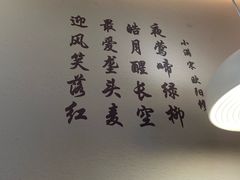 小满 宋 欧阳修
夜莺啼绿柳
皓月醒长空
最爱垄头麦
迎风笑落红